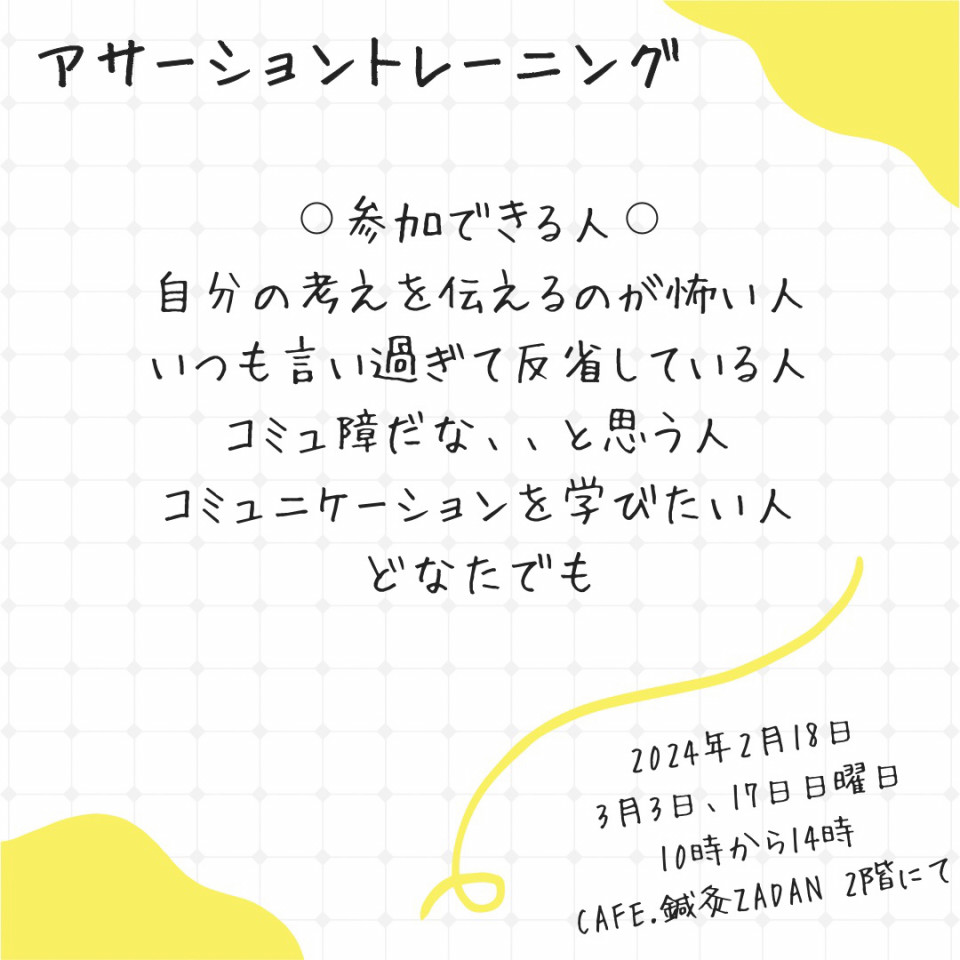 アサーショントレーニング
○参加できる人○
自分の考えを伝えるのが怖い人
いつも言い過ぎて反省している人
コミュ障だな、、と思う人
コミュニケーションを学びたい人
どなたでも
2024年2月18日
3月3日、17日日曜日
10時から14時
CAFE.鍼灸ZADAN 2階にて